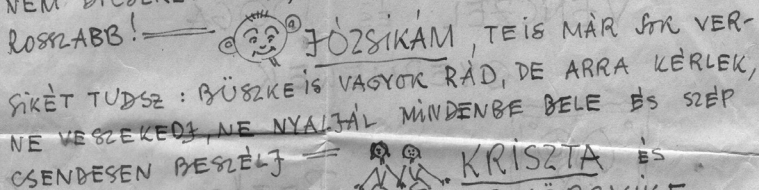 ROSSZABB! JÓZSIKÁM, TE IS MÀR SOK VER-
SIKÈT TUDSZ: BÜSZKE IS VAGYOK RÀD, DE ARRA KÉRLEK,
NE VESZEKEDJ, NE NYALJÁL MINDENBE BELE ÉS SZÉP
CSENDESEN BESZÉLJ = KRISZTA ÉS